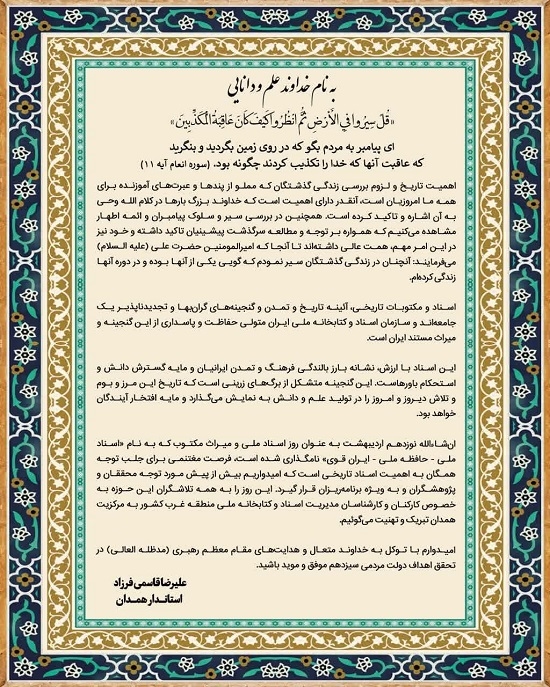 به نام خداوند علم و دانایی
«قُلْ سِيرُوا فِي الْأَرْضِ ثُمَّ انْظُرُوا كَيْفَ كَانَ عَاقِبَةُ الْمُكَذِّبِينَ»
ای پیامبر به مردم بگو که در روی زمین بگردید و بنگرید
که عاقبت آنها که خدا را تکذیب کردند چگونه بود. (سوره انعام آیه ۱۱)
اهمیت تاریخ و لزوم بررسی زندگی گذشتگان که مملو از پندها و عبرت‌های آموزنده برای
همه ما امروزیان است، آنقدر دارای اهمیت است که خداوند بزرگ بارها در کلام الله وحی
به آن اشاره و تاکید کرده است. همچنین در بررسی سیر و سلوک پیامبران و ائمه اطهار
مشاهده می‌کنیم که همواره بر توجه و مطالعه سرگذشت پیشینیان تاکید داشته و خود نیز
در این امر مهم، همت عالی داشته‌اند تا آنجا که امیرالمومنین حضرت علی (علیه السلام)
می‌فرمایند: آنچنان در زندگی گذشتگان سیر نمودم که گویی یکی از آنها بوده و در دوره آنها
زندگی کرده‌ام.
اسناد و مکتوبات تاریخی، آئینه تاریخ و تمدن و گنجینه‌های گران‌بها و تجدیدناپذیر یک
جامعه‌اند و سازمان اسناد و کتابخانه ملی ایران متولی حفاظت و پاسداری از این گنجینه و
میراث مستند ایران است.
این اسناد با ارزش، نشانه بارز بالندگی فرهنگ و تمدن ایرانیان و مایه گسترش دانش و
استحکام باورهاست. این گنجینه متشکل از برگ‌های زرینی است که تاریخ این مرز و بوم
و تلاش دیروز و امروز را در تولید علم و دانش به نمایش می‌گذارد و مایه افتخار آیندگان
خواهد بود.
ان‌شاءالله نوزدهم اردیبهشت به عنوان روز اسناد ملی و میراث مکتوب که به نام «اسناد
ملی - حافظه ملی - ایران قوی» نامگذاری شده است، فرصت مغتنمی برای جلب توجه
همگان به اهمیت اسناد تاریخی است که امیدواریم بیش از پیش مورد توجه محققان و
پژوهشگران و به ویژه برنامه‌ریزان قرار گیرد. این روز را به همه تلاشگران این حوزه به
خصوص کارکنان و کارشناسان مدیریت اسناد و کتابخانه ملی منطقه غرب کشور به مرکزیت
همدان تبریک و تهنیت می‌گوئیم.
امیدوارم با توکل به خداوند متعال و هدایت‌های مقام معظم رهبری (مدظله العالی) در
تحقق اهداف دولت مردمی سیزدهم موفق و موید باشید.
علیرضا قاسمی فرزاد
استاندار همدان